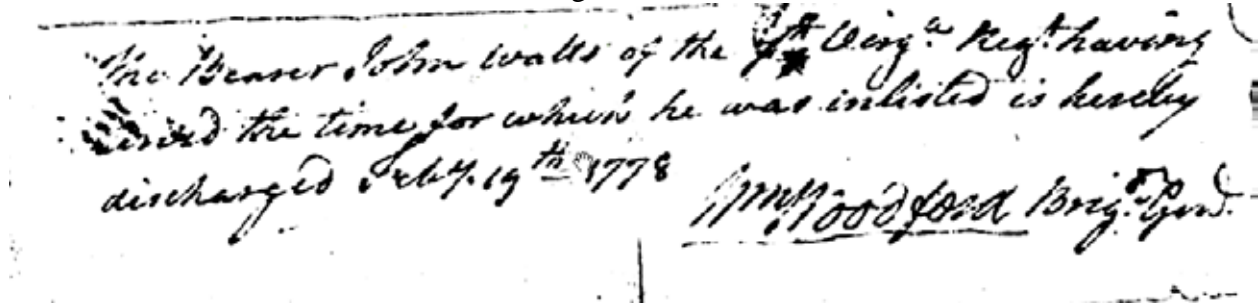 The Bearer John Walls of the 7th Virga. Regt. having
served the time for which he was inlisted is hereby
discharged Feby. 19th 1778
Wm. Woodford Brigr. Genl.